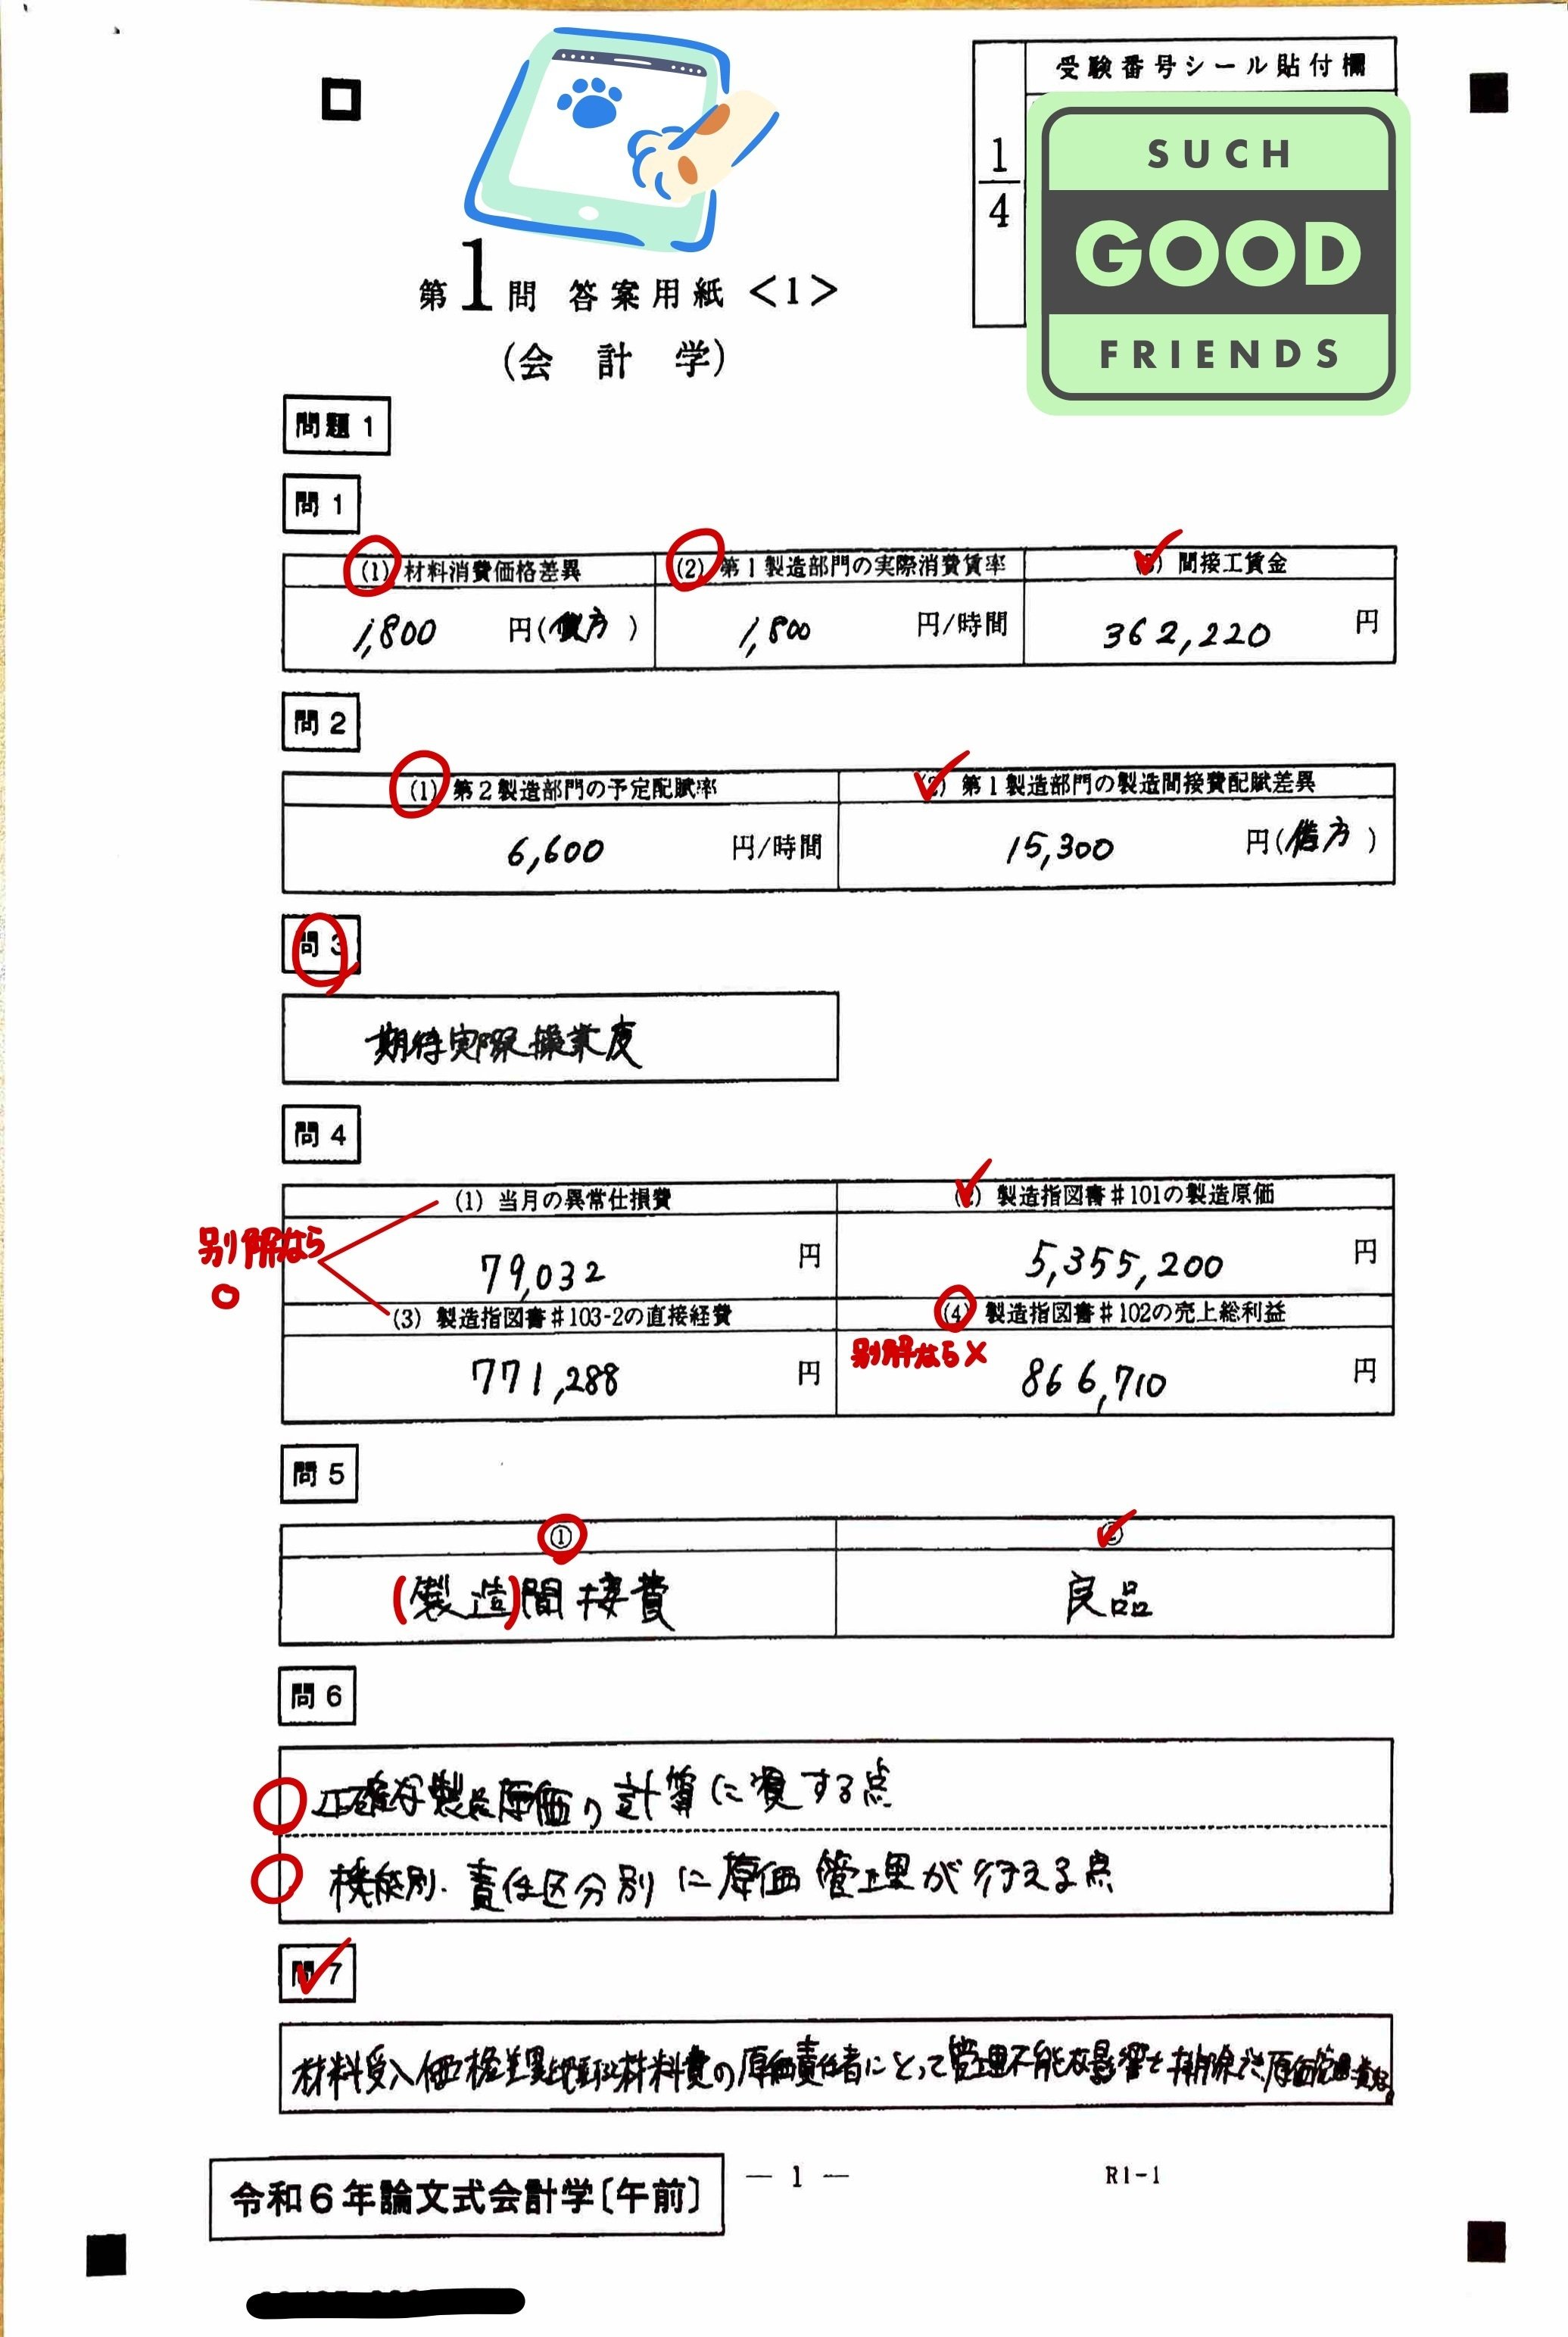 受験番号シール貼付欄
1
4
SUCH
GOOD
FRIENDS
第1問 答案用紙<1>
(会 計 学)
問題1
問1
(1) 材料消費価格差異
(2) 第1製造部門の実際消費賃率
間接工賃金
1,800 円( 方 )
1,800 円/時間
362,220 円
問2
(1) 第2製造部門の予定配賦率
(2) 第1製造部門の製造間接費配賦差異
6,600 円/時間
15,300 円(借方)
問3
期待実際操業度
問4
(1) 当月の異常仕損費
(2) 製造指図書#101の製造原価
別解なら
○
79,032 円
5,355,200 円
(3) 製造指図書#103-2の直接経費
(4) 製造指図書#102の売上総利益
別解なら×
771,288 円
866,710 円
問5
①
②
(製造)間接費
良品
問6
正確な製品原価の計算に資する点
機能別・責任区分別に原価管理が行える点
問7
材料受入価格差異 材料費の原価責任者にとって管理不能な影響を排除 原価管理
令和6年論文式会計学〔午前〕
― 1 ―
R1-1